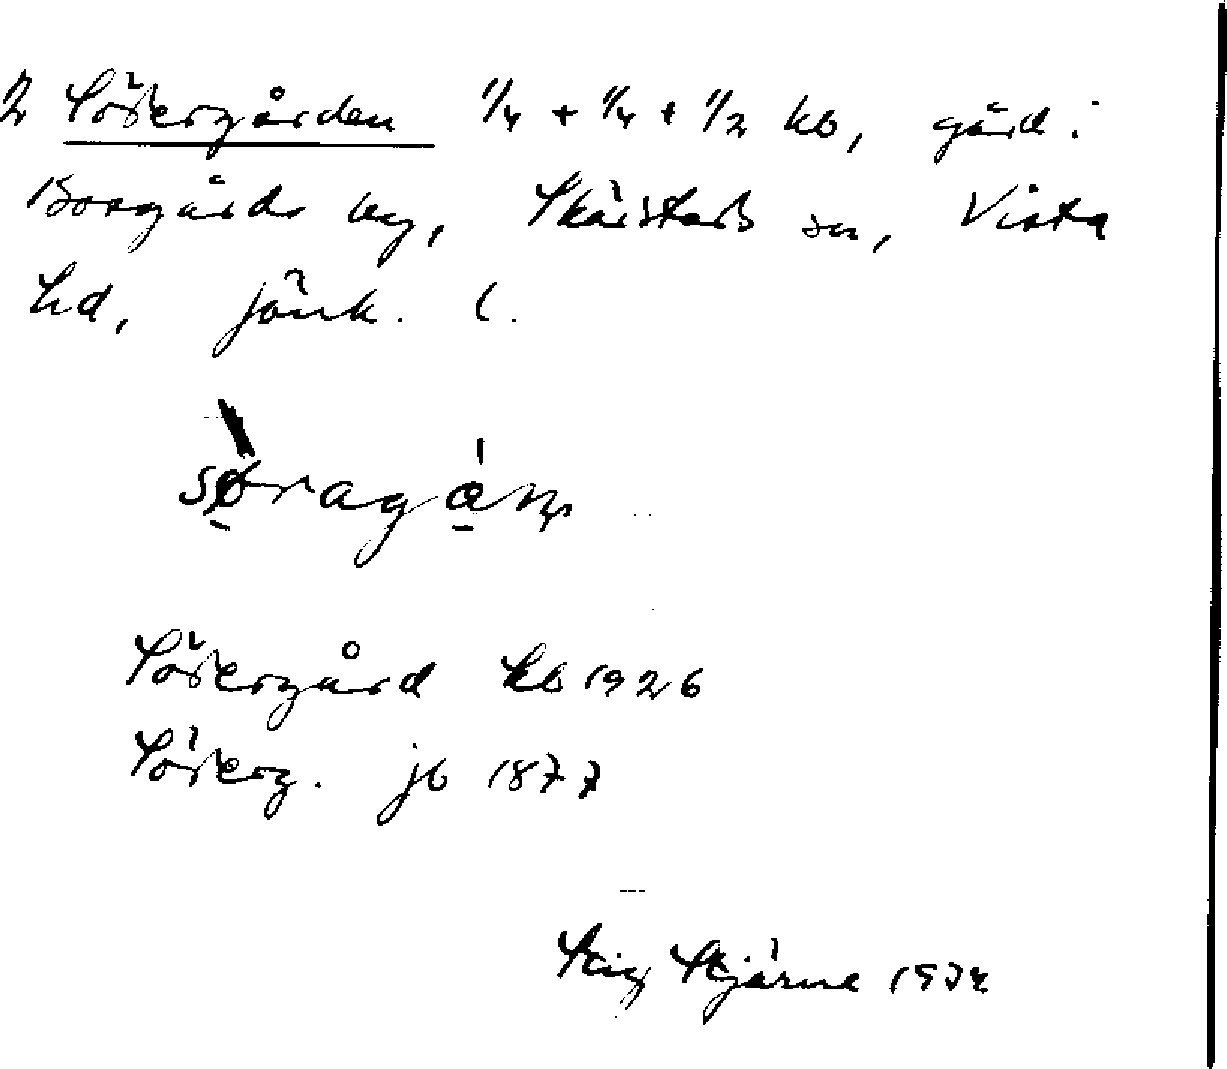 2 Södergården 1/4 + 1/4 + 1/2 kb, gård i
Borgårds by, Skärstads sn, Vista
hd, Jönk. l.
søragán
Södergård kb 1926
Söderg. jb 1877
Stig Stjärne